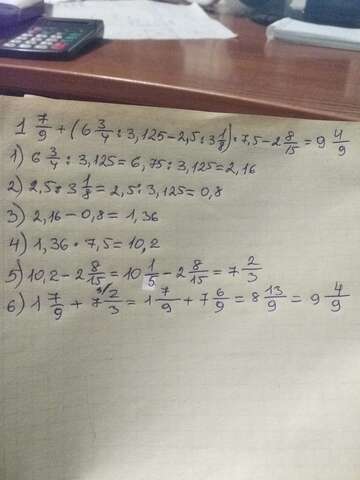 1 7/9 + (6 3/4 : 3,125 - 2,5 : 3 1/8) · 7,5 - 2 8/15 = 9 4/9
1) 6 3/4 : 3,125 = 6,75 : 3,125 = 2,16
2) 2,5 : 3 1/8 = 2,5 : 3,125 = 0,8
3) 2,16 - 0,8 = 1,36
4) 1,36 · 7,5 = 10,2
5) 10,2 - 2 8/15 = 10 1/5 - 2 8/15 = 7 2/3
6) 1 7/9 + 7 3/ 2/3 = 1 7/9 + 7 6/9 = 8 13/9 = 9 4/9